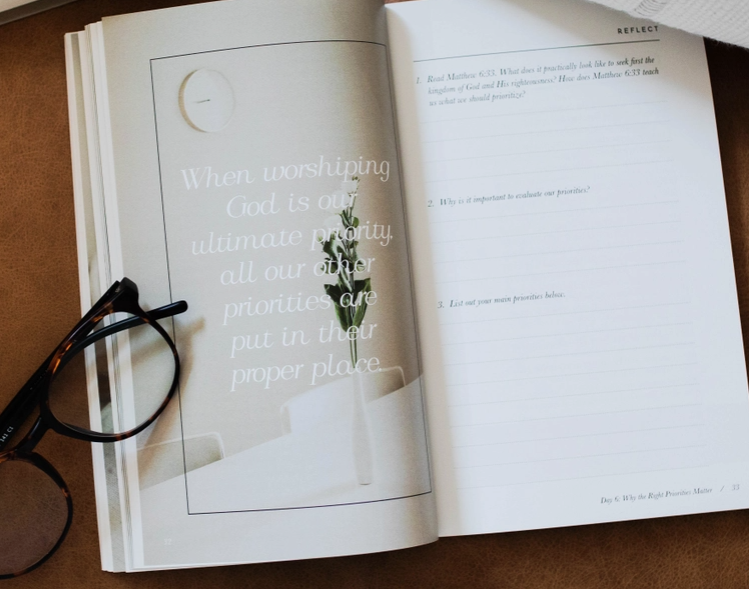 When worshiping
God is our
ultimate priority,
all our other
priorities are
put in their
proper place.
REFLECT
1. Read Matthew 6:33. What does it practically look like to seek first the
kingdom of God and His righteousness? How does Matthew 6:33 teach
us what we should prioritize?
2. Why is it important to evaluate our priorities?
3. List out your main priorities below.
Day 6: Why the Right Priorities Matter /